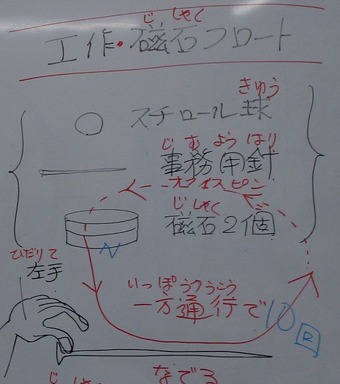 じ しゃく
工作・磁石フロート
きゅう
スチロール球
じ む よう はり
事務用針
オフィスピン
じしゃく
磁石2個
N
ひだりて
左手
いっぽうつうこう
一方通行で
10回
なでる